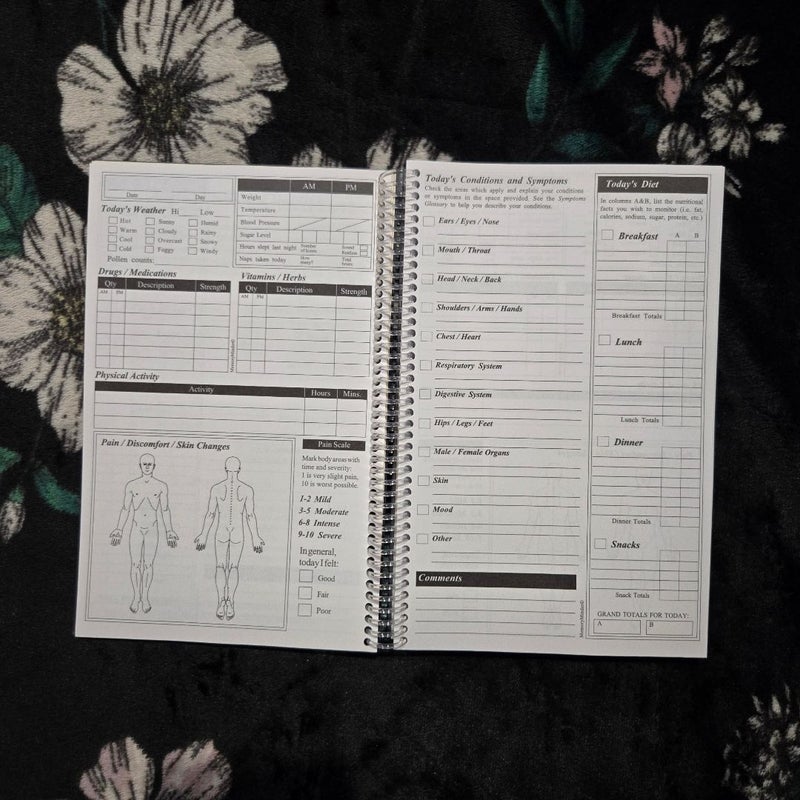 Date Day
Today's Weather Hi Low
Hot Sunny Humid
Warm Cloudy Rainy
Cool Overcast Snowy
Cold Foggy Windy
Pollen counts:
AM PM
Weight
Temperature
Blood Pressure
Sugar Level
Hours slept last night Number of times Sound Restless
Naps taken today How many? Total hours
Drugs / Medications
Qty Description Strength
AM PM
Vitamins / Herbs
Qty Description Strength
AM PM
MemoryMinder©
Physical Activity
Activity Hours Mins.
Pain / Discomfort / Skin Changes
Pain Scale
Mark body areas with
time and severity:
1 is very slight pain,
10 is worst possible.
1-2 Mild
3-5 Moderate
6-8 Intense
9-10 Severe
In general,
today I felt:
Good
Fair
Poor
Today's Conditions and Symptoms
Check the areas which apply and explain your conditions
or symptoms in the space provided. See the Symptoms
Glossary to help you describe your conditions.
Ears / Eyes / Nose
Mouth / Throat
Head / Neck / Back
Shoulders / Arms / Hands
Chest / Heart
Respiratory System
Digestive System
Hips / Legs / Feet
Male / Female Organs
Skin
Mood
Other
Comments
MemoryMinder©
Today's Diet
In columns A&B, list the nutritional
facts you wish to monitor (i.e. fat,
calories, sodium, sugar, protein, etc.)
Breakfast A B
Breakfast Totals
Lunch
Lunch Totals
Dinner
Dinner Totals
Snacks
Snack Totals
GRAND TOTALS FOR TODAY:
A B